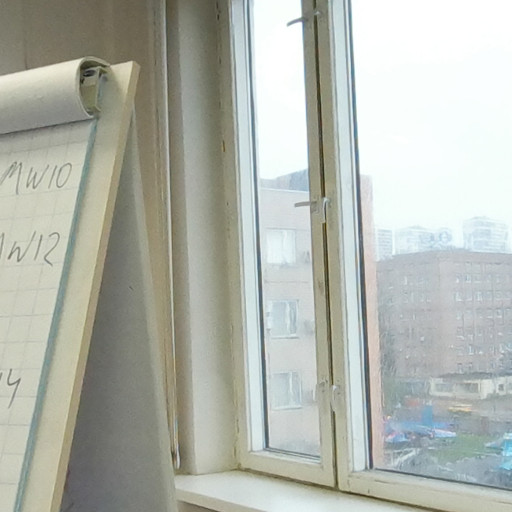 MW10
MW12